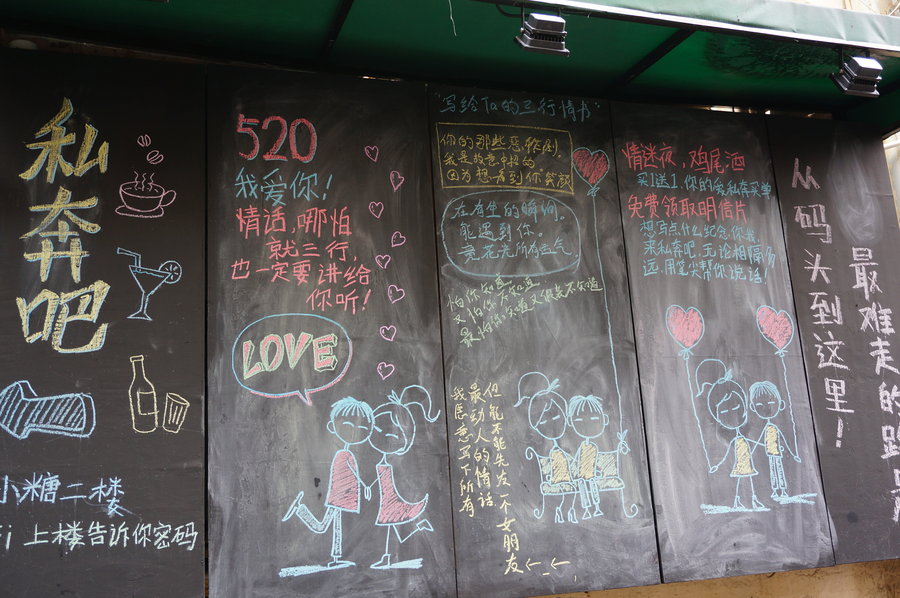 私奔吧
小糖二楼
i 上楼告诉你密码
520
我爱你！
情话，哪怕
就三行，
也一定要讲给
你听！
LOVE
"写给Ta的三行情书"
你的那些恶作剧，
我是故意中招的
因为想看到你笑颜
在有生的瞬间，
能遇到你，
竟花光所有运气
怕你知道
又怕你不知道
最怕你知道又假装不知道
我愿意写下所有
最动人的情话
但能不能先发一个女朋友←←
情迷夜，鸡尾酒
买1送1，你的爱私奔买单
免费领取明信片
想写点什么纪念你我，
来私奔吧，无论相隔多
远，用笔尖帮你说话
从码头到这里！
最难走的路是